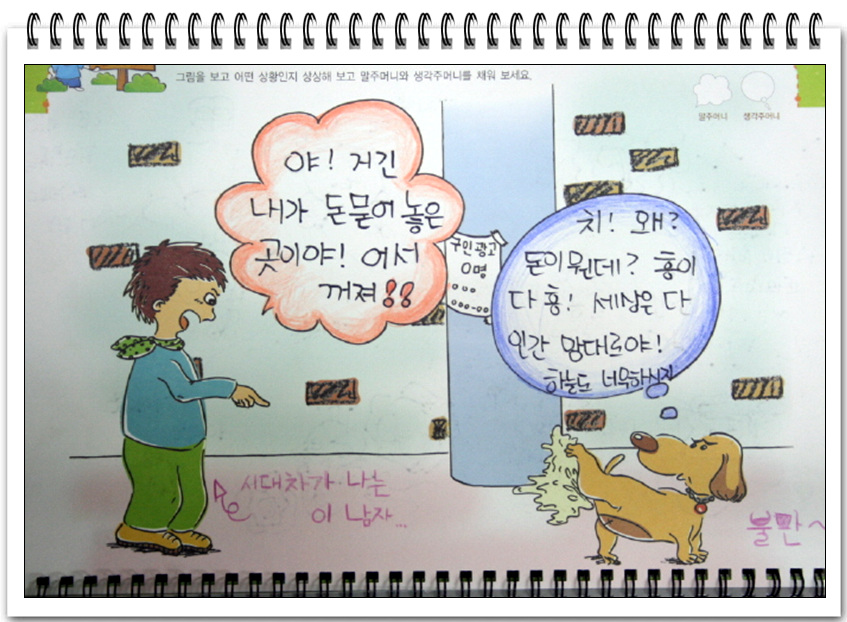 그림을 보고 어떤 상황인지 상상해 보고 말주머니와 생각주머니를 채워 보세요.
말주머니
생각주머니
야! 거긴
내가 돈묻어 놓은
곳이야! 어서
꺼져!!
구인광고
0명
치! 왜?
돈이 뭔데? 흥이
다 흥! 세상은 다
인간 맘대로야!
하늘도 너무하시지
시대차가 나는
이 남자...
불만~